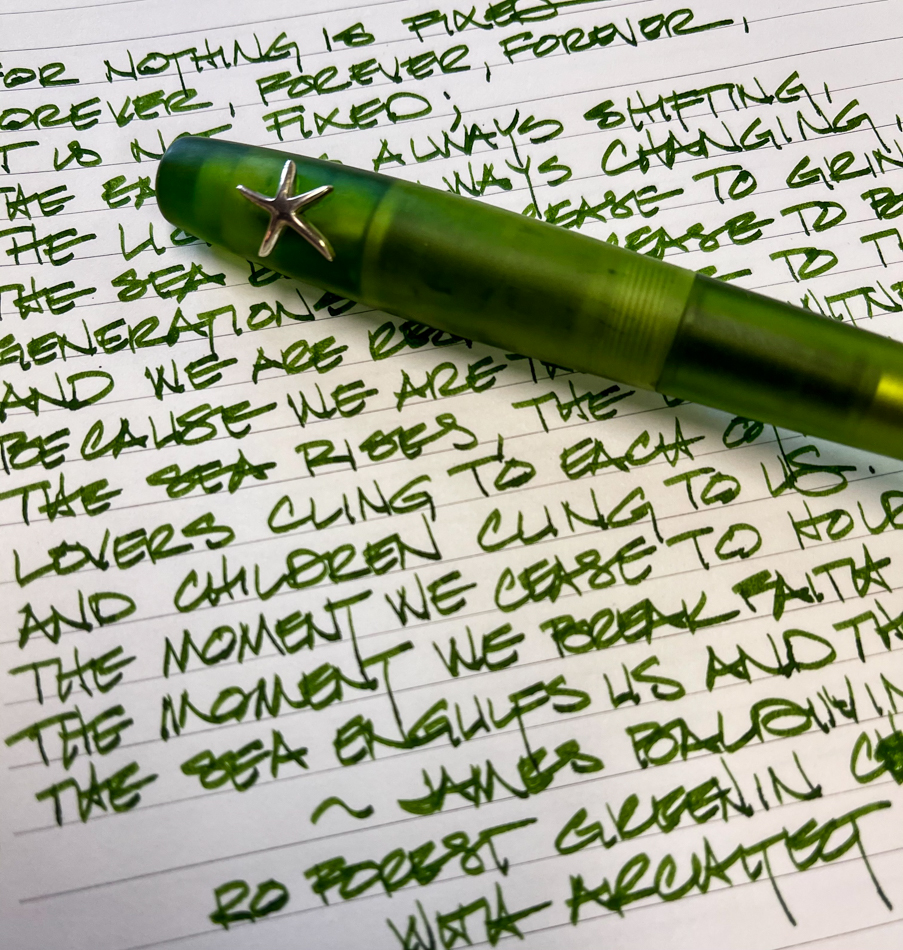 FOR NOTHING IS FIXED
OREVER, FOREVER, FOREVER,
T IS NOT FIXED;
THE EA ALWAYS SHIFTING,
THE LI WAYS CHANGING,
THE SEA CEASE TO GRIN
GENERATIONS CEASE TO BO
AND WE ARE RE TO TH
BECAUSE WE ARE TH WITNE
THE SEA RISES, THE
LOVERS CLING TO EACH OT
AND CHILDREN CLING TO US.
THE MOMENT WE CEASE TO HOLD
THE MOMENT WE BREAK FAITH
THE SEA ENGULFS US AND TH
~ JAMES BALDWIN
RO FOREST GREEN IN
WITH ARCHITECT